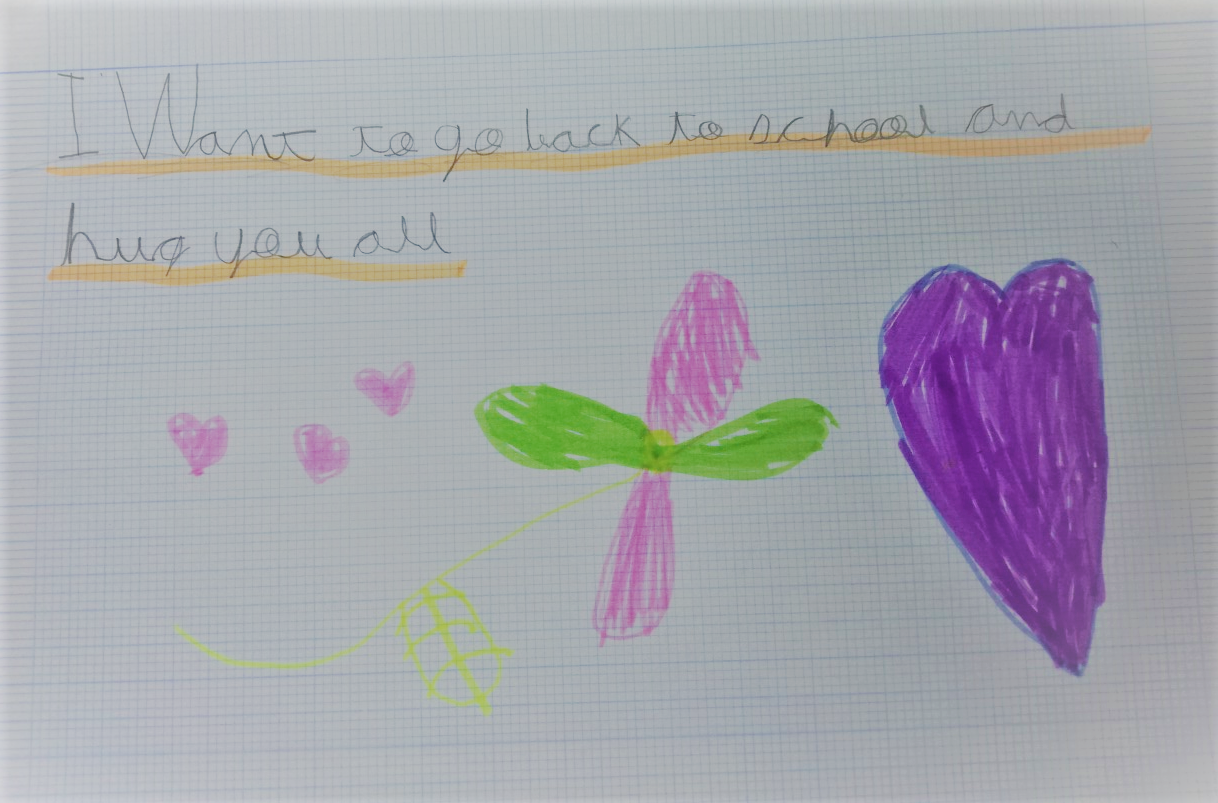 I Want to go back to school and
hug you all